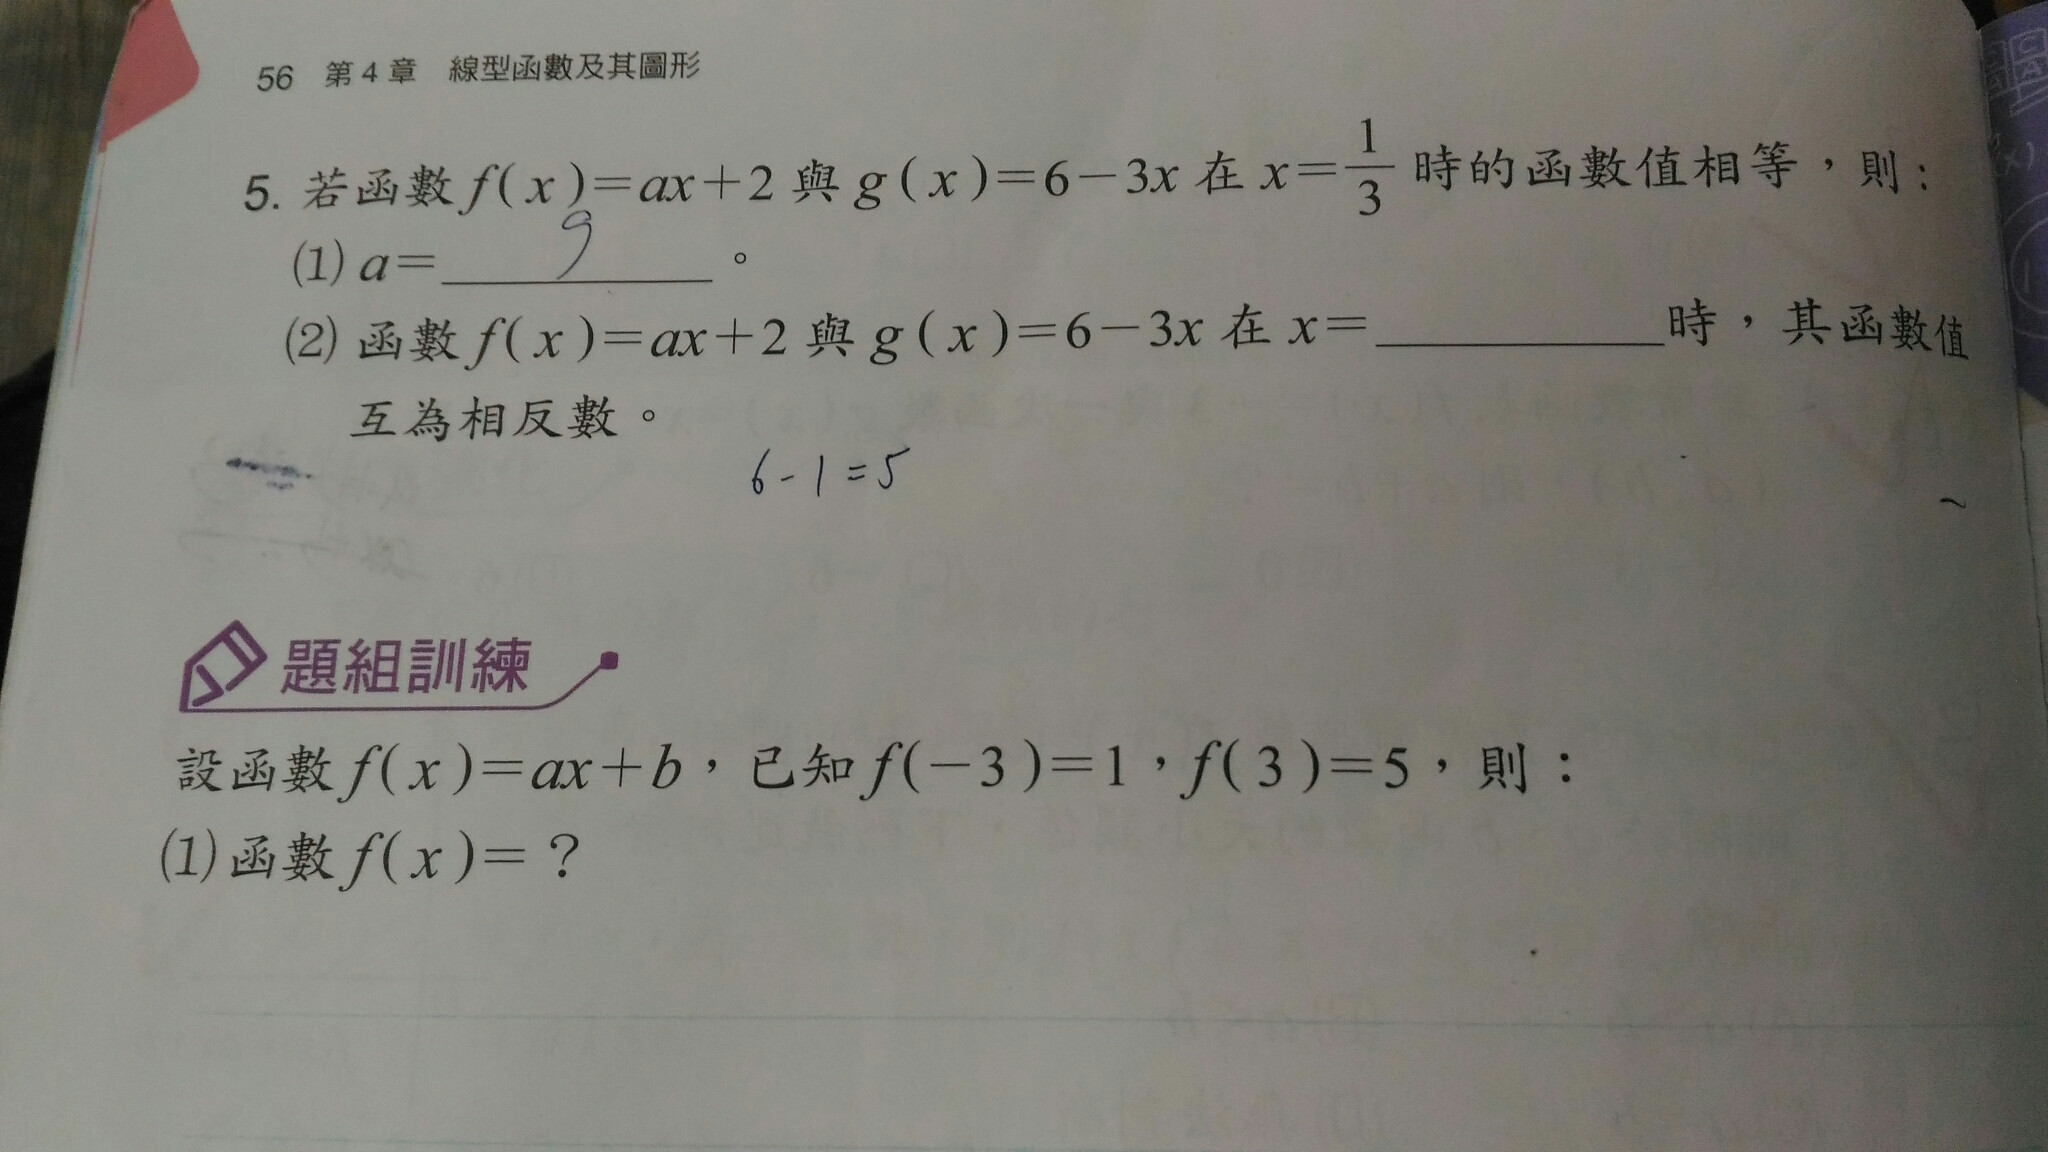 56 第4章 線型函數及其圖形
5. 若函數 f(x)=ax+2 與 g(x)=6-3x 在 x=1/3 時的函數值相等，則：
(1) a= 9 。
(2) 函數 f(x)=ax+2 與 g(x)=6-3x 在 x=__________時，其函數值
互為相反數。
6-1=5
題組訓練
設函數 f(x)=ax+b，已知 f(-3)=1，f(3)=5，則：
(1)函數 f(x)=？